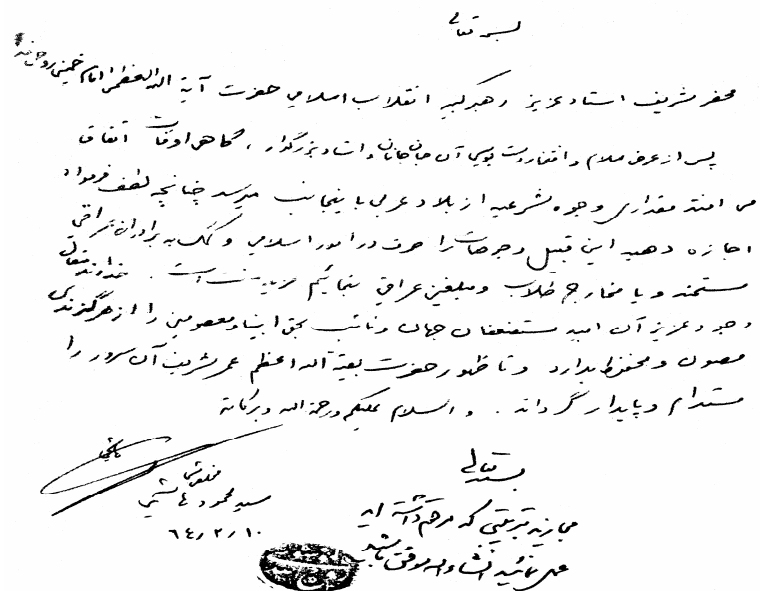 بسمه تعالی
محضر شریف استاد عزیز رهبر کبیر انقلاب اسلامی حضرت آیة الله العظمی امام خمینی روحی فداه
پس از عرض سلام و افتخار دست بوسی آن جان جانان و استاد بزرگوار، گاهی اوقات اتفاق
می افتد مقداری وجوه شرعیه از بلاد عربی باینجانب میرسد چنانچه لطف فرموده
اجازه دهید این قبیل وجوهات را صرف در امور اسلامی و کمک به برادران عراقی
مستمند و یا مخارج طلاب و مبلغین عراقی بنمایم مزید منت است. خداوند متعال
وجود عزیز آن امید مستضعفان جهان و نائب بحق انبیاء و معصومین را از هر گزندی
مصون و محفوظ بدارد و تا ظهور حضرت بقیة الله اعظم عمر شریف آن سرور را
مستدام و پایدار گرداند. والسلام علیکم ورحمة الله وبرکاته
مخلص شما
سید محمود هاشمی
۶۴/۲/۱۰
بسمه تعالی
مجازید بترتیبی که مرقوم داشته اید
عمل نمائید انشاءالله موفق باشید